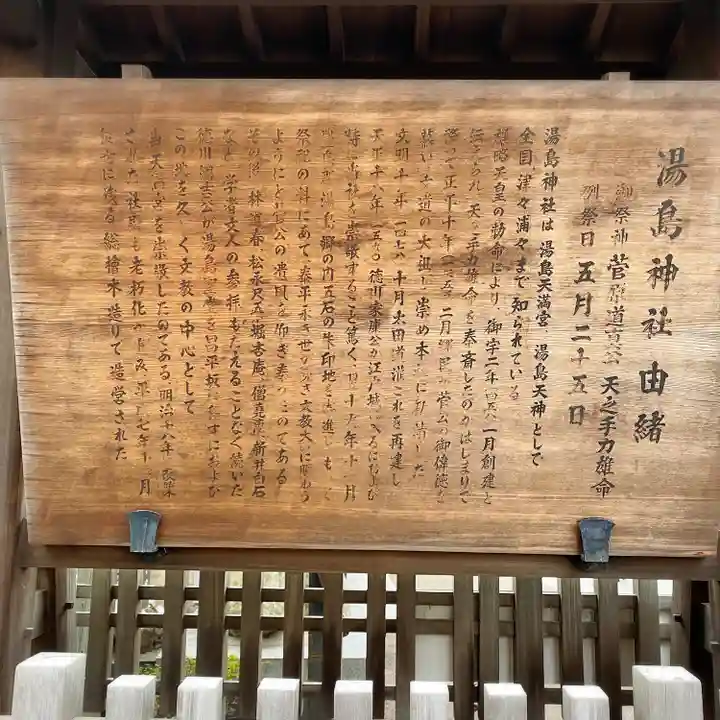 湯島神社由緒
御祭神 菅原道真公 天之手力雄命
例祭日 五月二十五日
湯島神社は湯島天満宮、湯島天神として
全国、津々浦々まで知られている
雄略天皇の勅命により御宇二年 一月創建と
伝えられ、天之手力雄命を奉斎したのがはじまりで
降って正平十年 二月郷民が菅公の御偉徳を
慕い 文道の大祖と崇め本社に勧請した
文明十年 十月太田道灌これを再建し
天正十八年 徳川家康公が江戸城に入るにおよび
特に当社を崇敬すること篤く、翌十九年十一月
湯島郷の内五石の朱印地を
祭祀の料にあて、泰平永き世が続き、文教大いに賑わう
ようにと 公の遺風を仰ぎ奉ったのである
その後、林道春、松永尺五、堀杏庵、僧堯恵、新井白石
など 学者文人の参拝もたえることなく続いた
徳川綱吉公が湯島聖堂を昌平坂に移すにおよび
この地を久しく文教の中心として
当天満宮を崇敬したのである、明治十八年 改築
された社殿も老朽化 平成七年十二月
後 総檜木造りで造営された